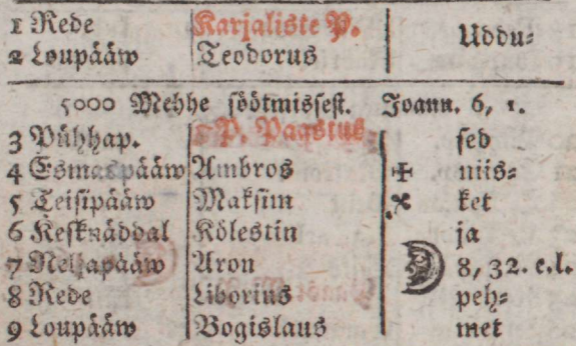 1 Rede Karjaliste P. Uddu-
2 Loupääw Teodorus
5000 Mehhe söötmissest. Joann. 6, 1.
3 Pühhap. P. Paastus sed
4 Esmaspääw Ambros niis-
5 Teisipääw Maksim ket
6 Kesknäddal Kölestin ja
7 Neljapääw Aron 8, 32. e.l.
8 Rede Liborius peh-
9 Loupääw Bogislaus met